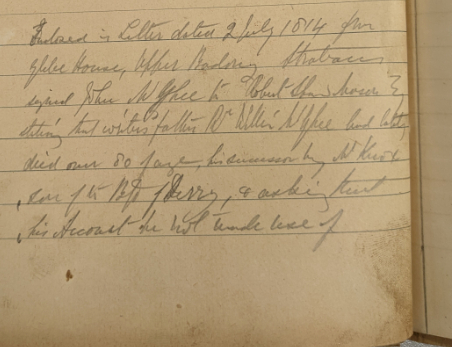 Enclosed is Letter dated 2 July 1814 from
Glebe House, Upper Badony Strabane
signed John McGhee to Robert
stating that writer's father Dr Willm McGhee had lately
died over 80 of age, his successor being Mr Knox
son of the Bp of Derry, & asking that
his Account be not made use of